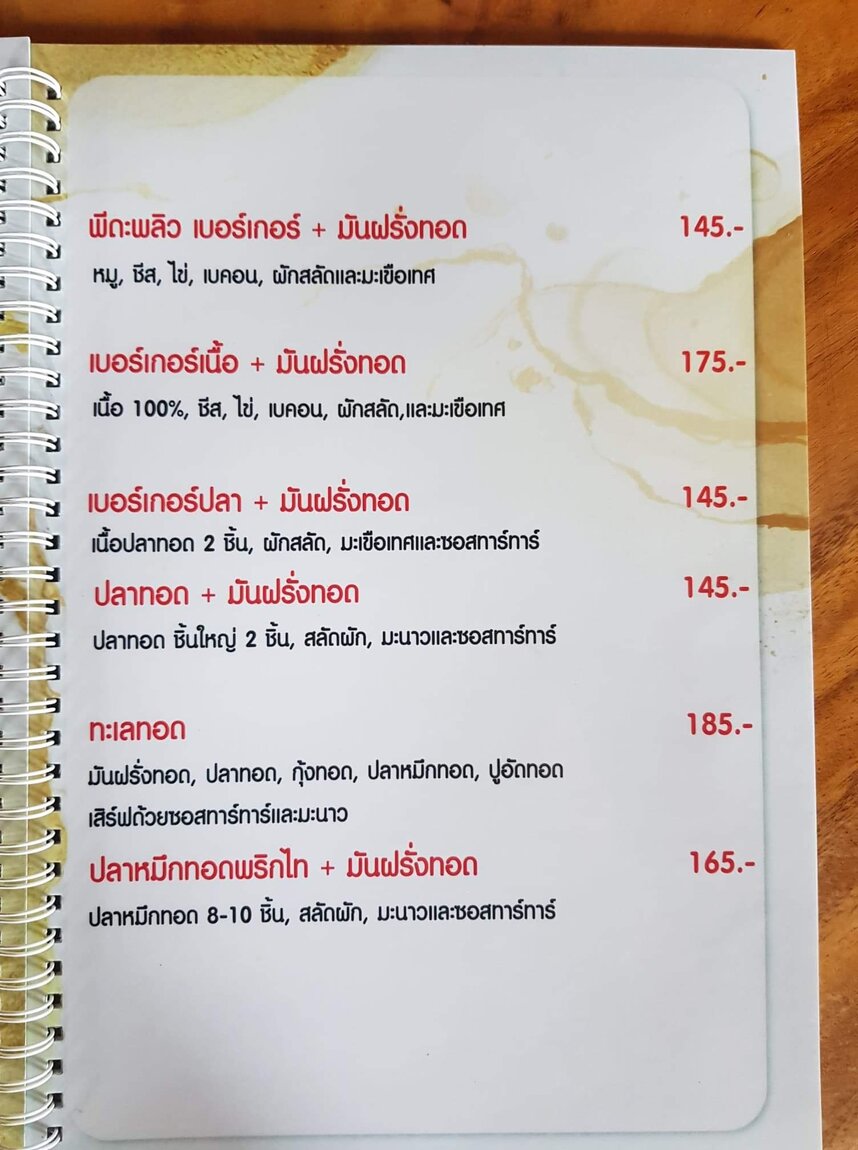 พีดะพลิว เบอร์เกอร์ + มันฝรั่งทอด 145.-
หมู, ชีส, ไข่, เบคอน, ผักสลัดและมะเขือเทศ
เบอร์เกอร์เนื้อ + มันฝรั่งทอด 175.-
เนื้อ 100%, ชีส, ไข่, เบคอน, ผักสลัด,และมะเขือเทศ
เบอร์เกอร์ปลา + มันฝรั่งทอด 145.-
เนื้อปลาทอด 2 ชิ้น, ผักสลัด, มะเขือเทศและซอสทาร์ทาร์
ปลาทอด + มันฝรั่งทอด 145.-
ปลาทอด ชิ้นใหญ่ 2 ชิ้น, สลัดผัก, มะนาวและซอสทาร์ทาร์
ทะเลทอด 185.-
มันฝรั่งทอด, ปลาทอด, กุ้งทอด, ปลาหมึกทอด, ปูอัดทอด
เสิร์ฟด้วยซอสทาร์ทาร์และมะนาว
ปลาหมึกทอดพริกไท + มันฝรั่งทอด 165.-
ปลาหมึกทอด 8-10 ชิ้น, สลัดผัก, มะนาวและซอสทาร์ทาร์